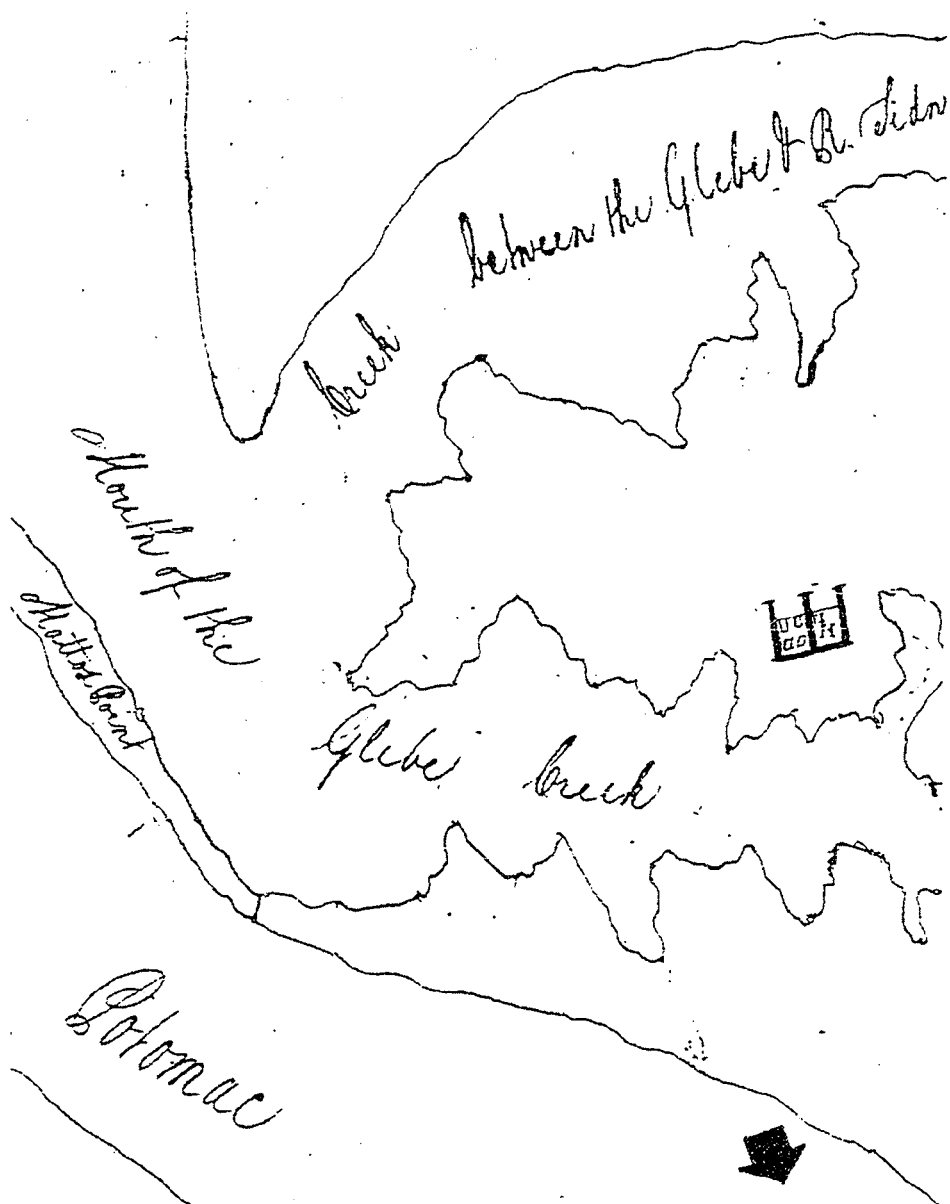 between the Glebe & R. Sidn
Creek
Mouth of the
Mattox Point
Glebe Creek
Potomac